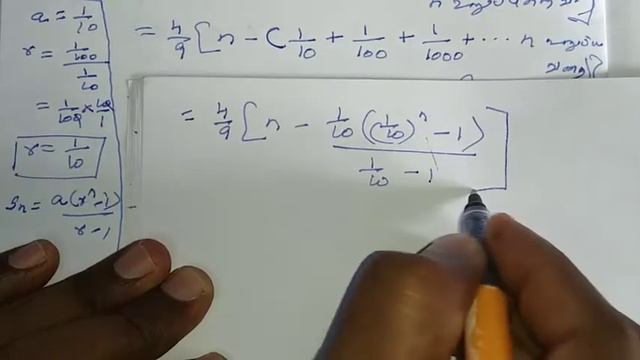 a = 1/10
r = 1/100 / 1/10
= 1/100 × 10/1
r = 1/10
Sn = a(rⁿ-1) / r-1
= 4/9 [n - (1/10 + 1/100 + 1/1000 + ... n
= 4/9 [n - 1/10((1/10)ⁿ - 1) / 1/10 - 1]